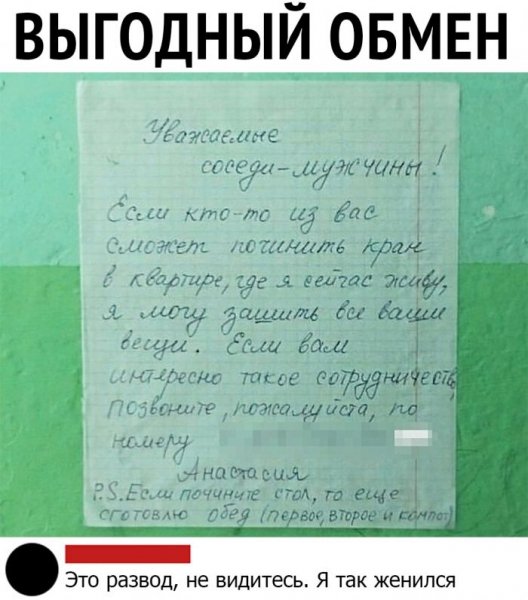 ВЫГОДНЫЙ ОБМЕН
Уважаемые
соседи-мужчины!
Если кто-то из вас
сможет починить кран
в квартире, где я сейчас живу,
я могу зашить все ваши
вещи. Если вам
интересно такое сотрудничество,
позвоните, пожалуйста, по
номеру
Анастасия
P.S. Если почините стол, то еще
сготовлю обед (первое, второе и компот)
Это развод, не видитесь. Я так женился